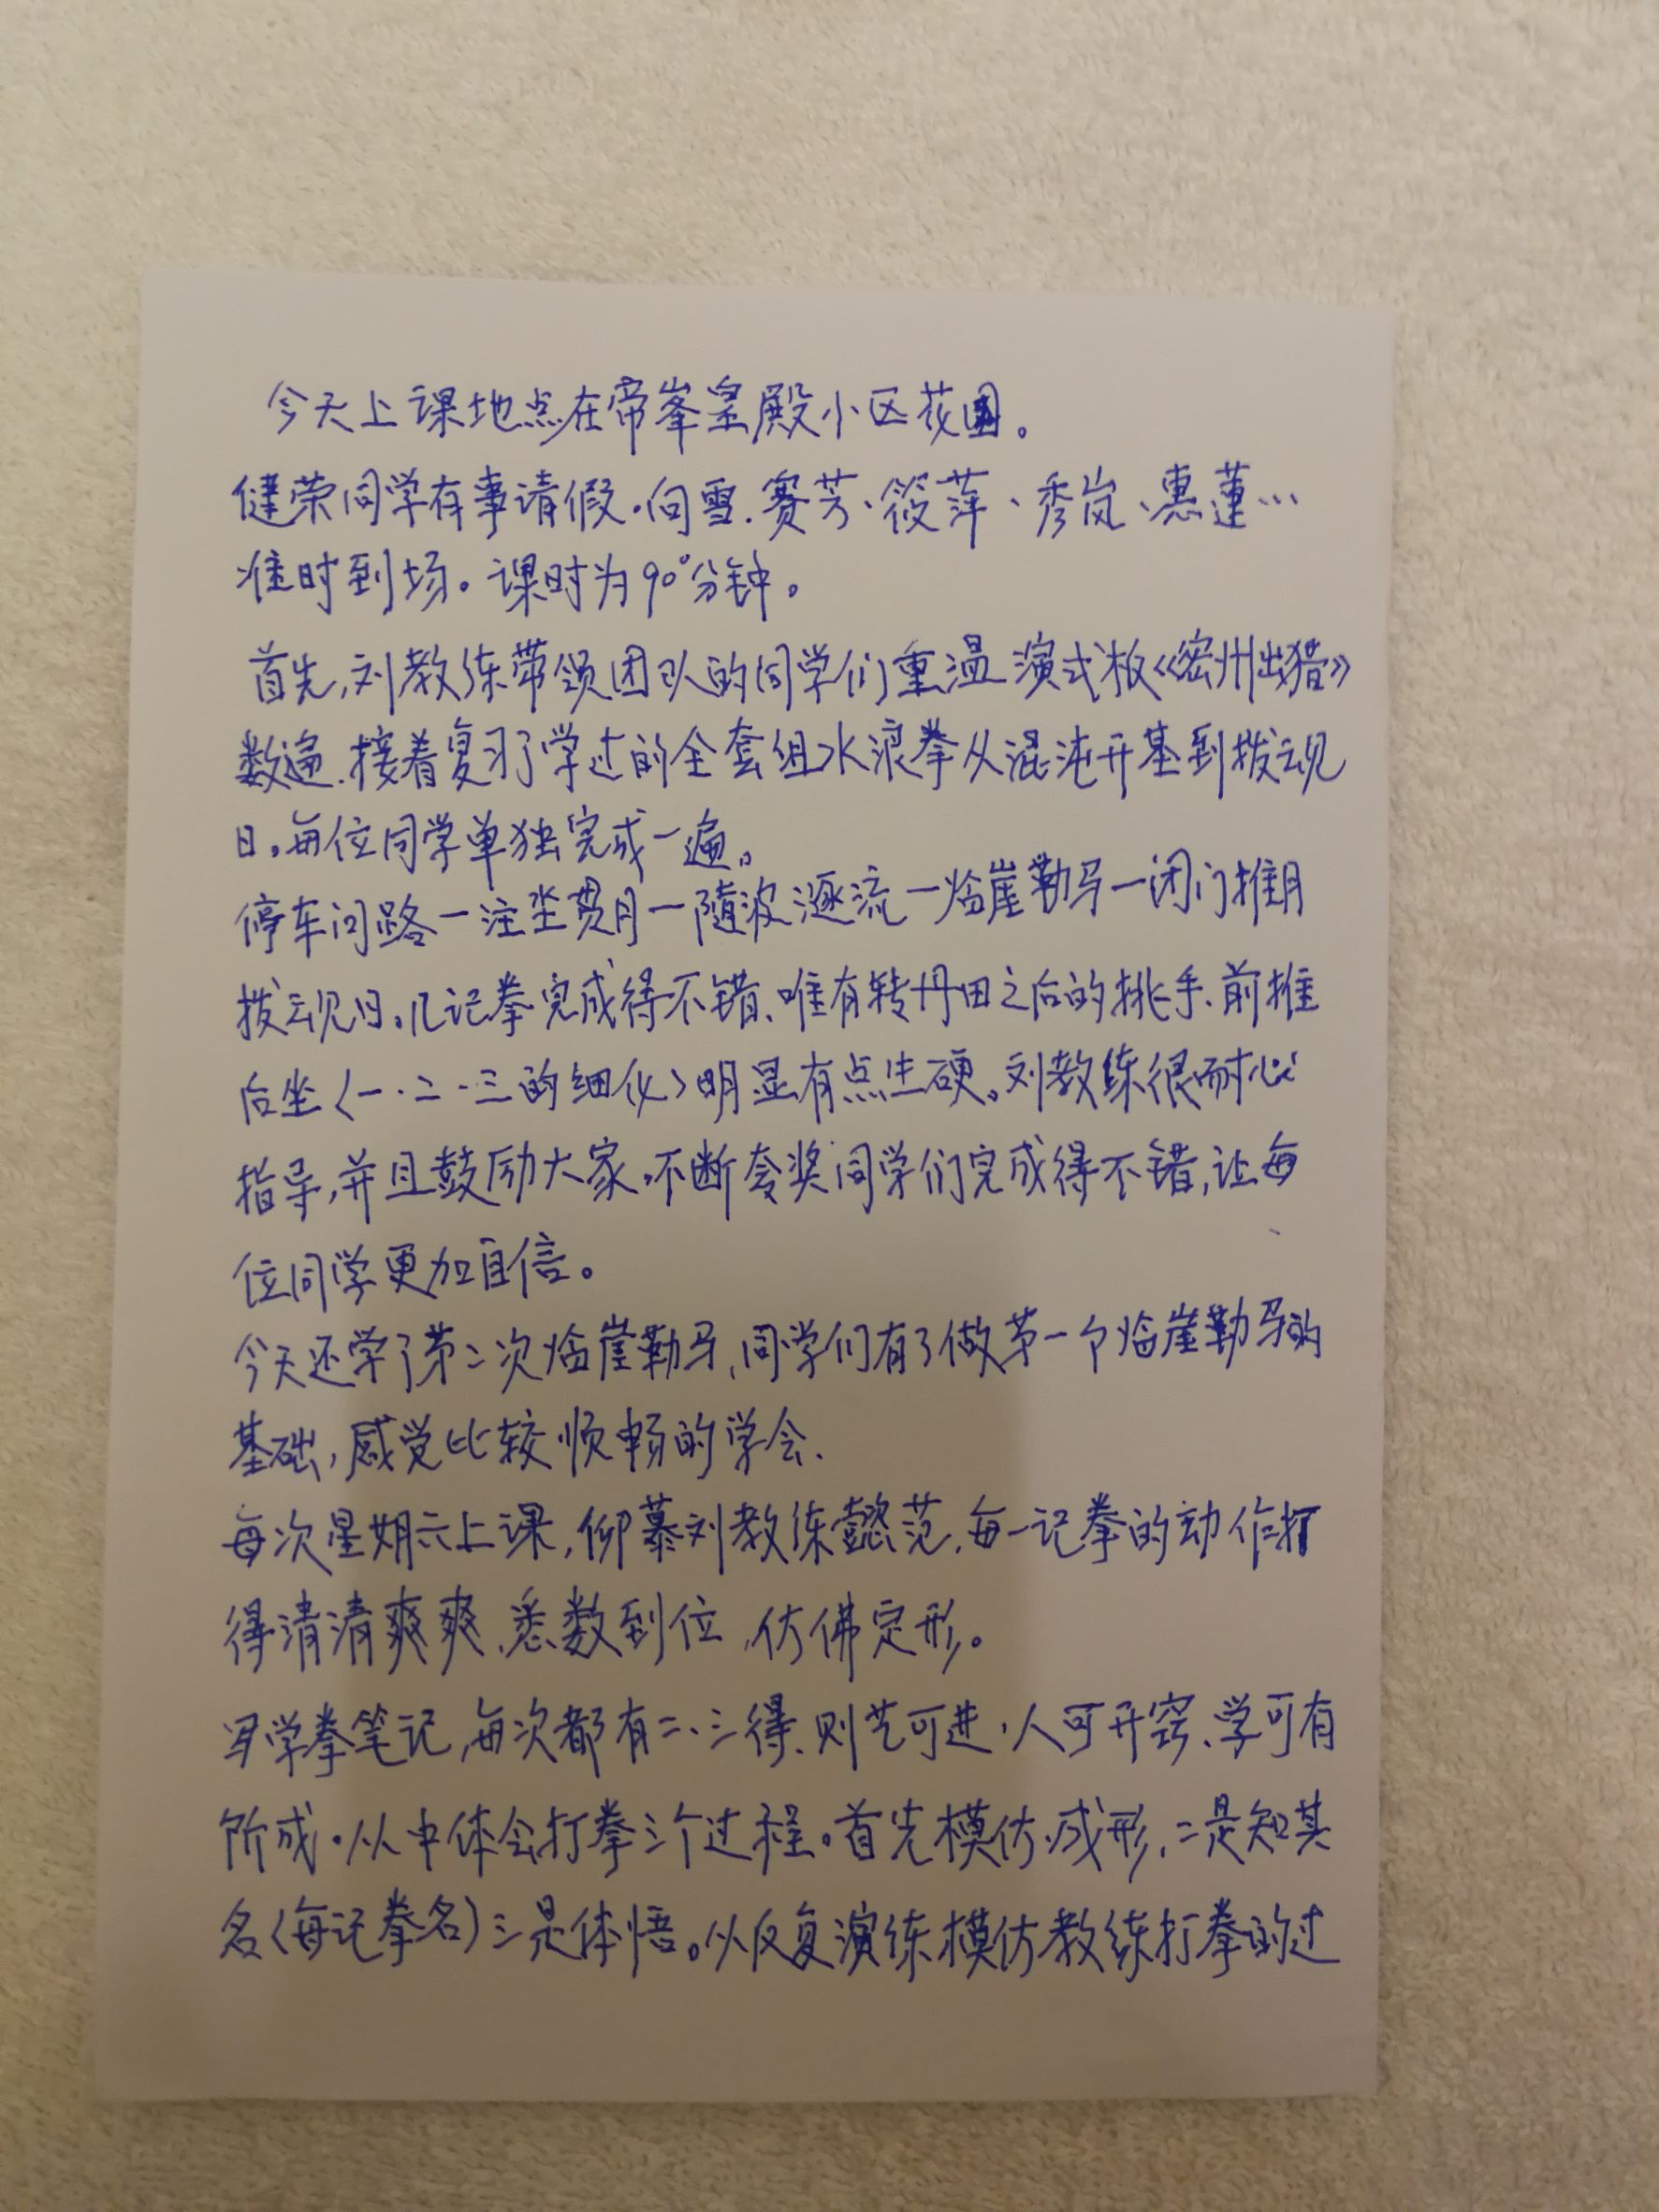 今天上课地点在帝峯皇殿小区花园。
健荣同学有事请假。向雪.赛芳、筱萍、秀岚、惠莲…
准时到场。课时为90°分钟。
首先,刘教练带领团队的同学们重温演式板《密州出猎》
数遍.接着复习了学过的全套组水浪拳从混沌开基到拨云见
日。每位同学单独完成一遍。
停车问路一注坐贯月一随波逐流一临崖勒马一闭门推月
拨云见日。几记拳完成得不错、唯有转丹田之后的挑手、前推
后坐〈一.二.三的细化〉明显有点生硬。刘教练很耐心
指导,并且鼓励大家。不断夸奖同学们完成得不错,让每
位同学更加自信。
今天还学了第二次临崖勒马,同学们有了做第一个临崖勒马的
基础,感觉比较顺畅的学会、
每次星期六上课,仰慕刘教练懿范,每一记拳的动作打
得清清爽爽、悉数到位,仿佛定形。
写学拳笔记,每次都有二、三得、则艺可进,人可开窍、学可有
所成。从中体会打拳三个过程。首先模仿、成形,二是知其
名〈每记拳名)三是体悟。从反复演练模仿教练打拳的过